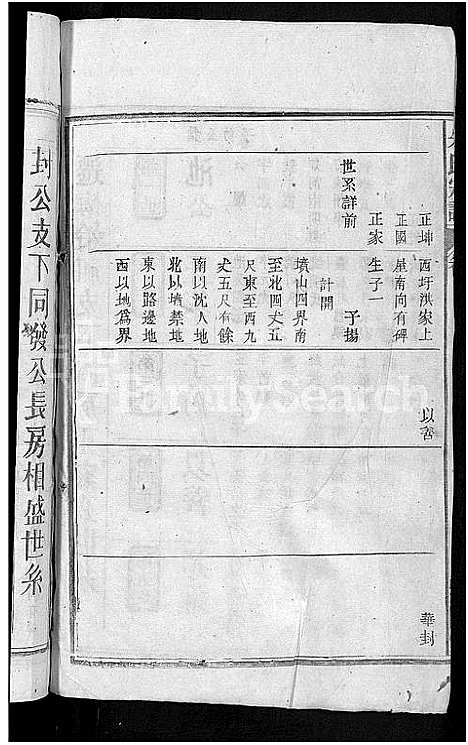 正坤
正國
正家
世系詳前
西圩洪家上
屋南向有碑
生子一
子揚
計開
墳山四界南
至北四丈五
尺東至西九
丈五尺有餘
南以沈人地
北以墙禁地
東以路邊地
西以地爲界
華封
封公支下同發公長房相盛世系
FamilySearch